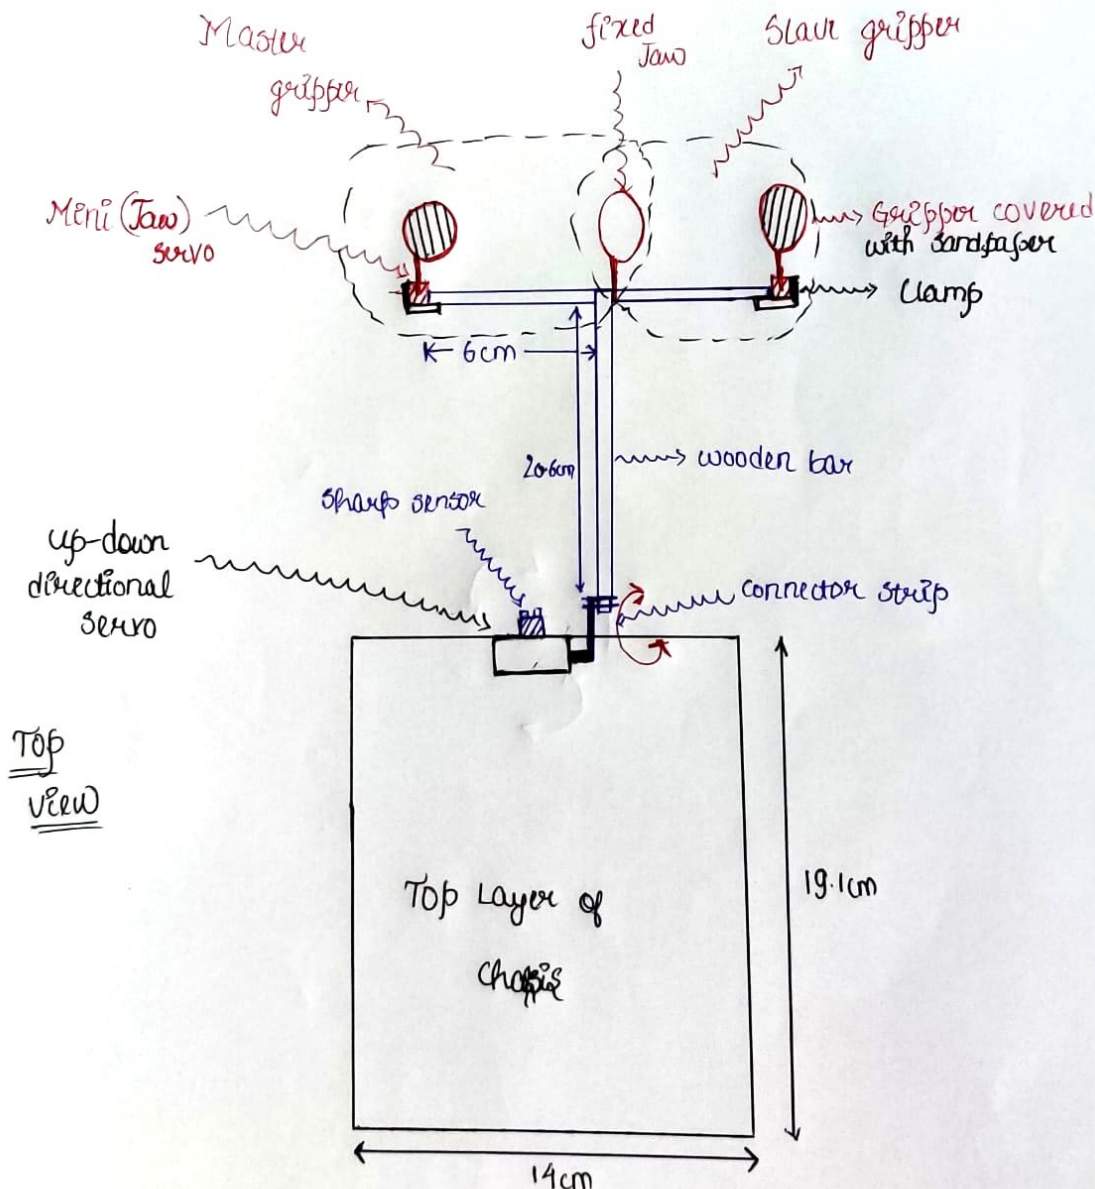 Master
gripper
fixed
Jaw
Slave gripper
Mini (Jaw)
servo
Gripper covered
with sandpaper
Clamp
6cm
20.6cm
wooden bar
sharp sensor
up-down
directional
servo
connector strip
TOP
VIEW
TOP Layer of
chassis
19.1cm
14cm